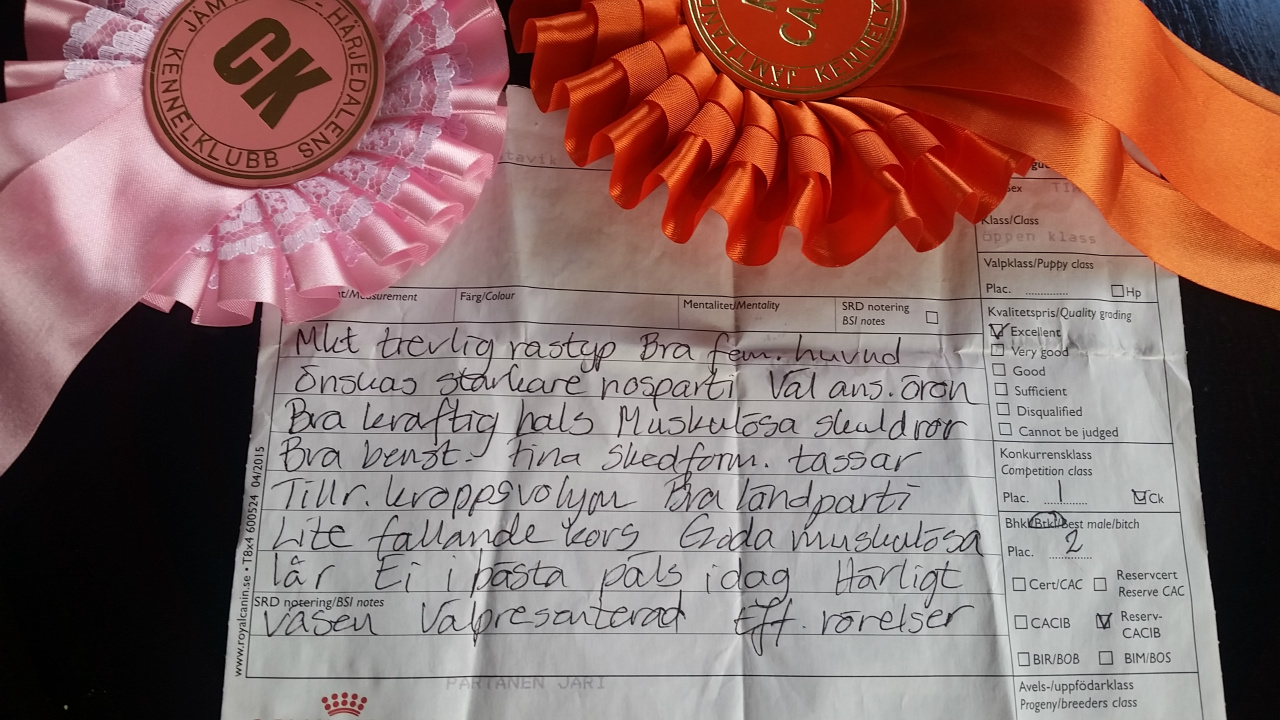 JÄMTLANDS - HÄRJEDALENS KENNELKLUBB
CK
CAC
JÄMTLAN KENNELK
tavik
Sex TIK
Klass/Class
öppen klass
Valpklass/Puppy class
Plac. ............ Hp
t/Measurement Färg/Colour Mentalitet/Mentality SRD notering
BSI notes
Kvalitetspris/Quality grading
Excellent
Very good
Good
Sufficient
Disqualified
Cannot be judged
Mkt trevlig rastyp Bra fem. huvud
Önskas starkare nosparti Väl ans. öron
Bra kraftig hals Muskulösa skuldror
Bra benst. Fina skedform. tassar
Tillr. kroppsvolym Bra ländparti
Lite fallande kors Goda muskulösa
lår Ei i bästa päls idag Härligt
SRD notering/BSI notes
väsen Välpresenterad Eff. rörelser
Konkurrensklass
Competition class
Plac. 1 Ck
Bhkl/Btkl/Best male/bitch
Plac. 2
Cert/CAC Reservcert
Reserve CAC
CACIB Reserv-
CACIB
BIR/BOB BIM/BOS
Avels-/uppfödarklass
Progeny/breeders class
www.royalcanin.se • TBx4 600524 04/2015
PARTANEN JARI